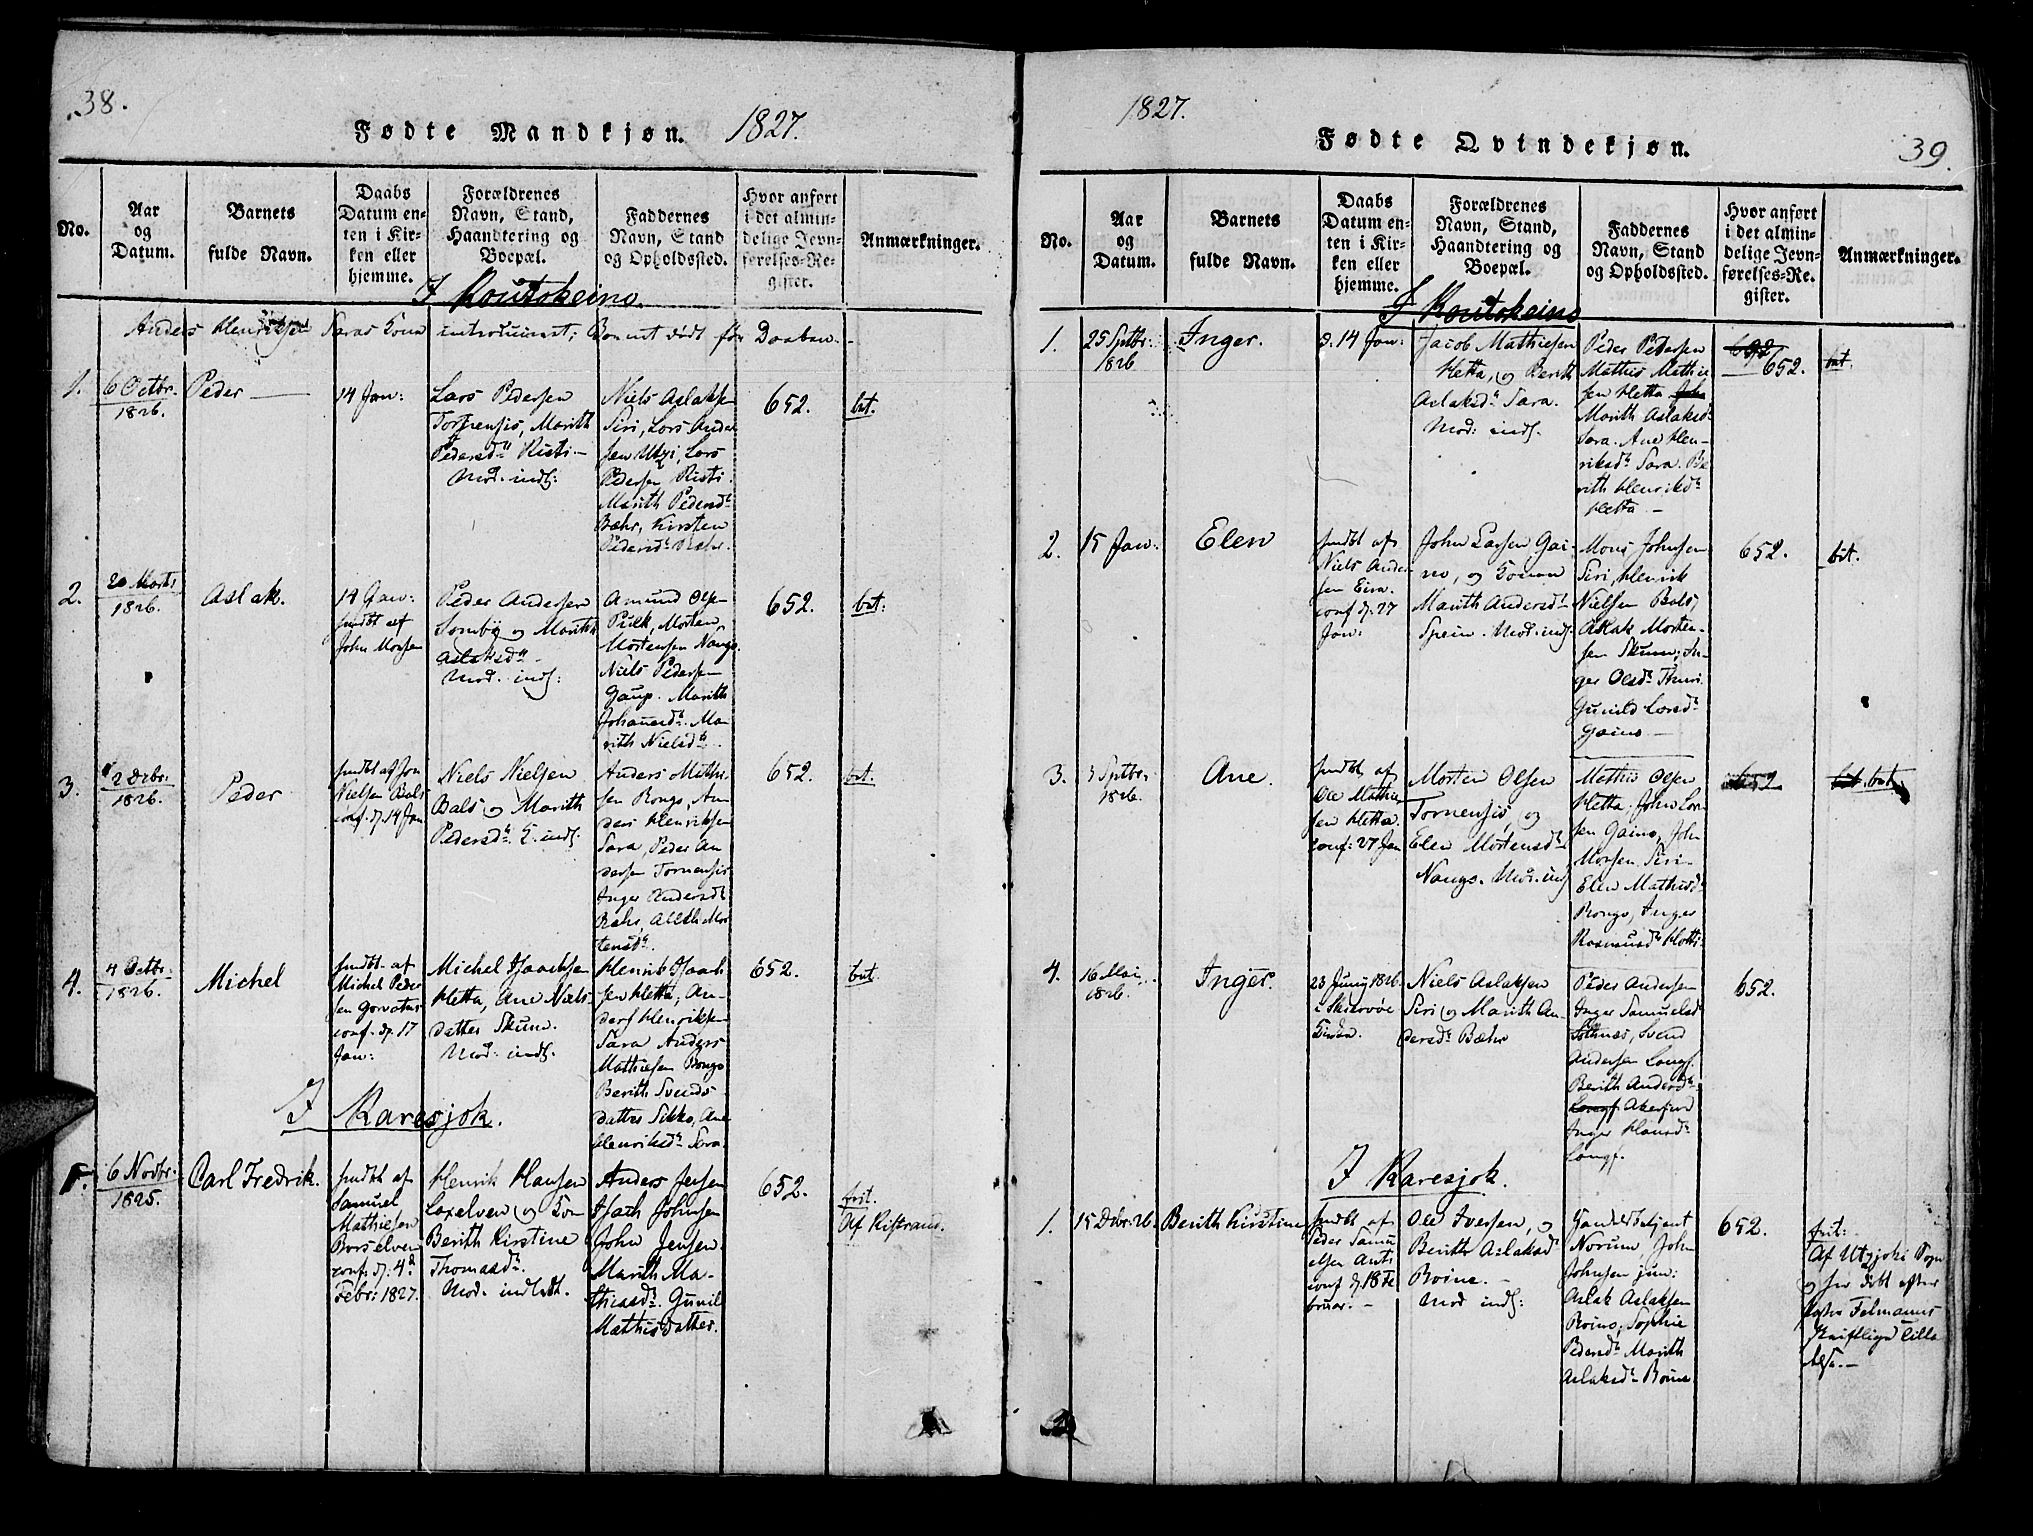 38.
Fødte Mandkjøn. 1827.
No.
Aar
og
Datum.
Barnets
fulde Navn.
Daabs
Datum en-
ten i Kir-
ken eller
hjemme.
Forældrenes
Navn, Stand,
Haandtering og
Boepæl.
Faddernes
Navn, Stand
og Opholdssted.
Hvor anført
i det almin-
delige Jevn-
førelses-Re-
gister.
Anmærkninger.
I Koutokeino.
Anders Henriksen Saras Kona introduceret; Barnet dødt før Daaben.
1.
6 Octbr.
1826.
Peder
14 Jan:
Lars Pedersen
Tornensis, Marith
Pedersd. Risti
Mod. inds:
Niels Aslaksen
Siri, Lars Ander
sen Utzi, Lars
Pedersen Risti.
Marith Pedersd.
Bæhr, Kirsten
Pedersd. Bæhr.
652.
bat.
2.
20 Marts
1826.
Aslak.
14 Jan:
hmdbt af
John Morsen
Peder Andersen
Sombÿ og Marith
Aslaksd.
Mod. inds:
Amund Olsen
Pulk, Morten
Mortensen Nango
Niels Pedersen
Gaup. Marith
Johannesd. Ma-
rith Nielsd.
652.
bat:
3.
2 Decbr.
1826.
Peder
hmdbt af Jon
Nielsen Bals
conf. d. 14 Jan
Niels Nielsen
Bals og Marith
Pedersd. K. inds.
Anders Mathi-
sen Rongo, An-
ders Henriksen
Sara, Peder An
dersen Tornensis
Inger Andersd.
Bæhr, Aleth Mor
tensd.
652.
bat.
4.
4 Octbr.
1826.
Michel
hmdbt. af
Michel Peder
sen Gorvatus
conf. d. 17
Jan:
Michel Isaachsen
Hetta, Ane Niels-
datter Skum.
Mod: inds.
Henrik Isaach
sen Hetta, An-
ders Henriksen
Sara Anders
Mathiesen Rongo
Berith Svends
datter Sikko, Ane
Henriksd. Sara.
652.
bat.
I Karesjok.
1.
6 Novbr.
1825.
Carl Fredrik.
hmdbt af
Samuel
Mathiesen
Borselven
conf. d. 4d
Febr: 1827.
Henrik Hansen
Laxelven og Kon
Berith Kirstine
Thomasd.
Mod. indledt.
Anders Jensen
Isach Johnsen
John Jensen
Marith Ma-
thiasd. Gunil
Mathisdatter.
652.
frit.
Af Kistrand.
1827.
Fødte Qvindekjøn.
39.
No.
Aar
og
Datum.
Barnets
fulde Navn.
Daabs
Datum en-
ten i Kir-
ken eller
hjemme.
Forældrenes
Navn, Stand,
Haandtering og
Boepæl.
Faddernes
Navn, Stand
og Opholdssted.
Hvor anført
i det almin-
delige Jevn-
førelses-Re-
gister.
Anmærkninger.
I Koutokeino
1.
25 Sptbr.
1826
Inger.
d. 14 Jan:
Jacob Mathiesen
Hetta, og Berith
Aslaksd. Sara.
Mod: inds.
Peder Pedersen
Mathis Mathie
sen Hetta
Marith Aslaksd.
Sara. Ane Hen-
riksd. Sara. Be
rith Henriksd.
Hetta.
652.
bat.
2.
15 Jan:
Elen
hmdbt af
Niels Ander
sen Eira.
conf. d. 27
Jan:
John Larsen Gai-
no, og Konen
Marith Andersd.
Spein. Mod. inds.
Mons Johnsen
Siri, Henrik
Nielsen Bals,
Aslak Morten-
sen Skum, In-
ger Olsd. Thuri
Gunild Larsd.
Gaino
652.
bat.
3.
5 Sptbr.
1826.
Ane.
hmdbt. af
Ole Mathie
sen Hetta.
conf: 27 Jan
Morten Olsen
Tornensis, og
Elen Mortensd.
Nango. Mod. inds
Mathis Olsen
Hetta, John Lar
sen Gaino, John
Morsen Siri
Elen Mathisd.
Rongo, Inger
Rasmusd. Hotti.
652
bat. bat.
4.
16 Mai
1826.
Inger.
23 Juny 1826.
i Skiervøe
Kirke.
Niels Aslaksen
Siri og Marith An-
dersd. Bæhr
Peder Andersen
Inger Samuelsd.
Svend
Andersen Longf.
Berith Andersd.
Longf. Akersjord
Inger Hansd.
Longf.
652.
I Karesjok.
1.
15 Decbr. 26.
Berith Kirstine
hmdbt af
Peder Samu
elsen Anti
conf d. 18 Fe
bruar.
Ole Iversen, og
Berith Aslaksd.
Boine.
Mod inds:
Handelsbetjent
Norum, John
Johnsen jun:
Aslak Aslaksen
Boino, Sophie
Pedersd. Marith
Aslaksd. Boine
652.
frit.
Af Utzjoki Sogn
og her døbt efter
Felmanns
skriftlige Tilla
delse.